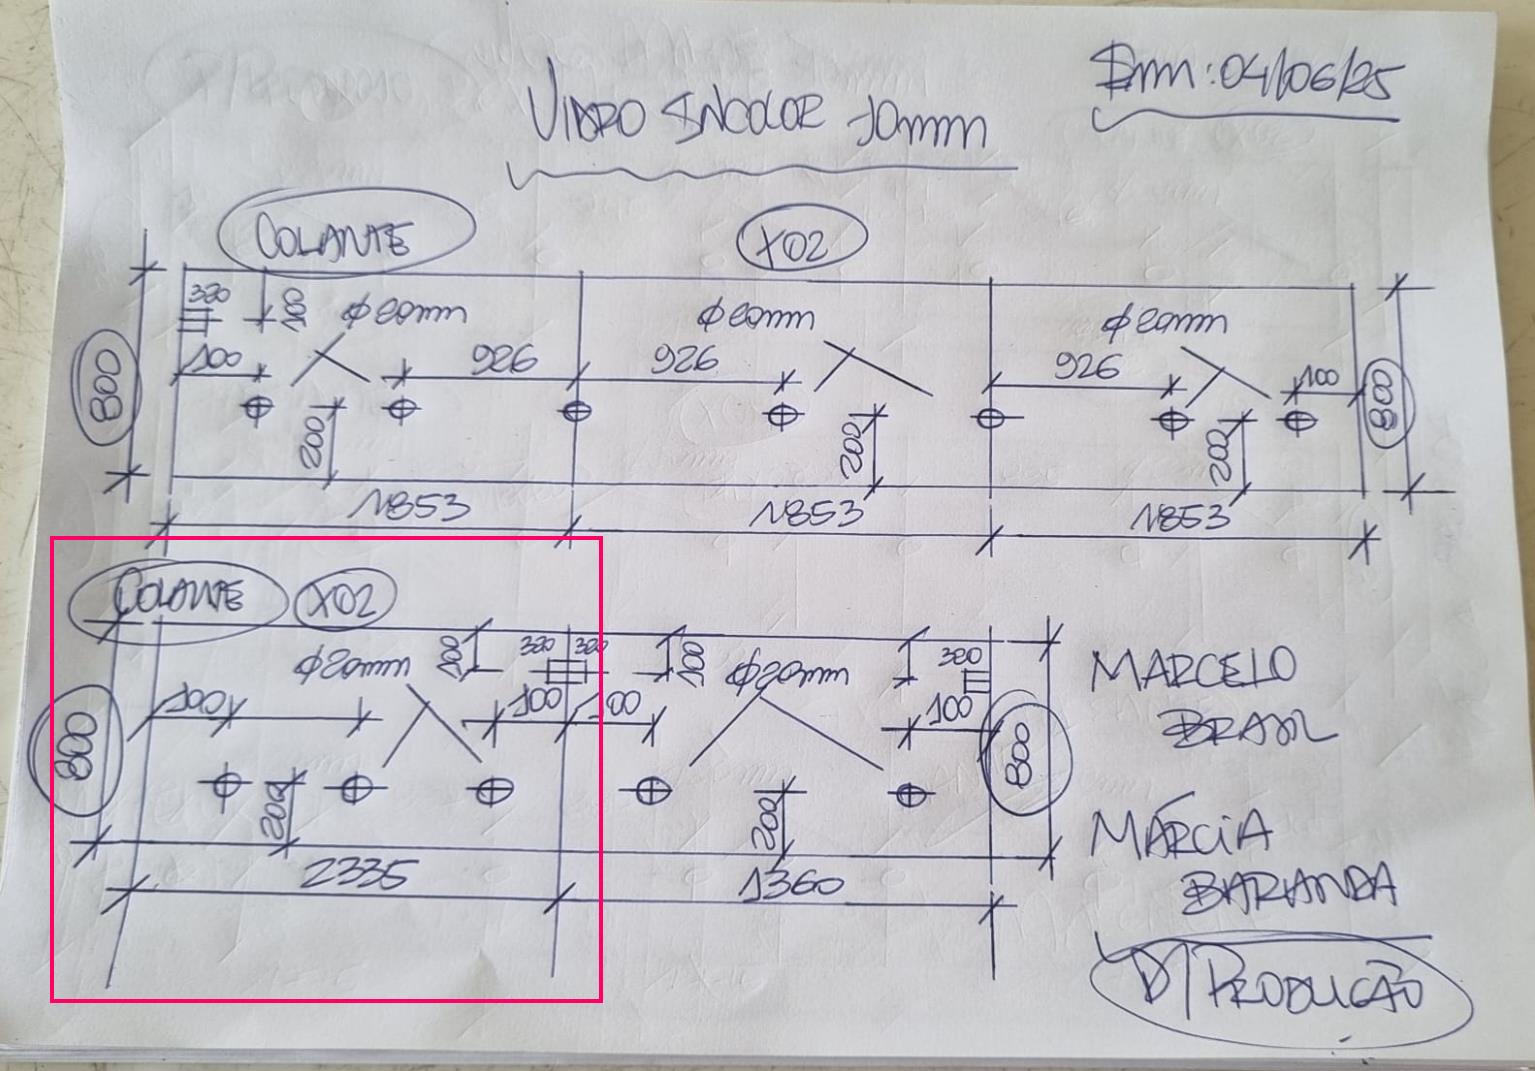 Em: 04/06/25
VIDRO INCOLOR 10mm
COLANTE X02
320 100 ϕ20mm ϕ20mm ϕ20mm
100 926 926 926 100
800 200 200 200 800
1853 1853 1853
COLANTE X02
ϕ20mm 100 320 320 100 ϕ20mm 320
100 100 100
800 200 200 800
2335 1360
MARCELO
BRASIL
MÁRCIA
BARANDA
P/ PRODUÇÃO